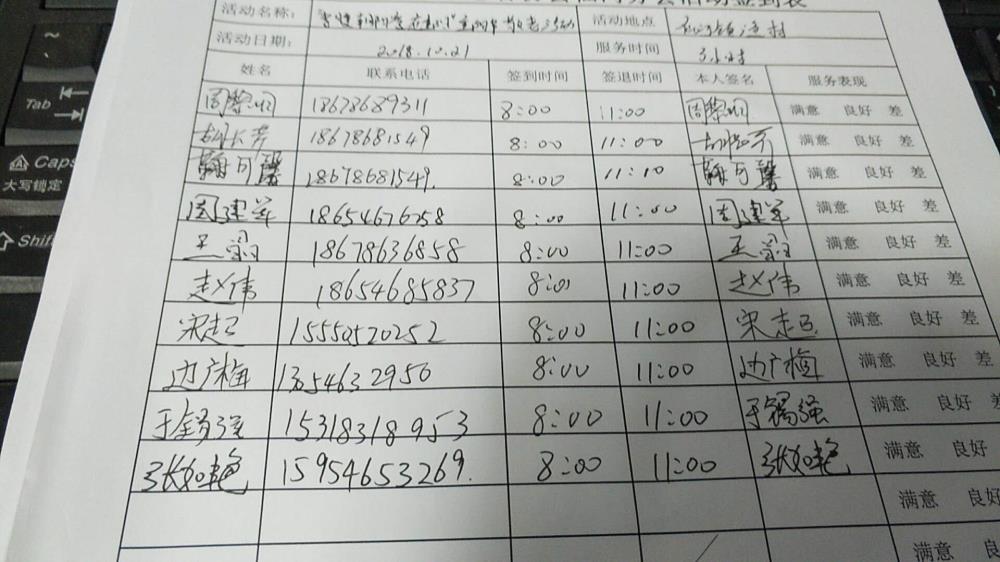 活动签到表
活动名称： 活动地点
活动日期： 2018.10.21 服务时间 3小时
姓名 联系电话 签到时间 签退时间 本人签名 服务表现
周黎明 18678689311 8:00 11:00 周黎明 满意 良好 差
18678681549 8:00 11:00 满意 良好 差
韩可馨 18678681549. 8:00 11:10 韩可馨 满意 良好 差
周建军 18654676758 8:00 11:00 周建军 满意 良好 差
王 18678636858 8:00 11:00 王 满意 良好 差
赵伟 18654685837 8:00 11:00 赵伟 满意 良好 差
宋志 15550520252 8:00 11:00 宋志 满意 良好 差
边广梅 13054632950 8:00 11:00 边广梅 满意 良好 差
于锡强 15318318953 8:00 11:00 于锡强 满意 良好 差
张如艳 15954653269. 8:00 11:00 张如艳 满意 良好
满意 良好
满意 良好
Tab
Caps
大写锁定
Shift